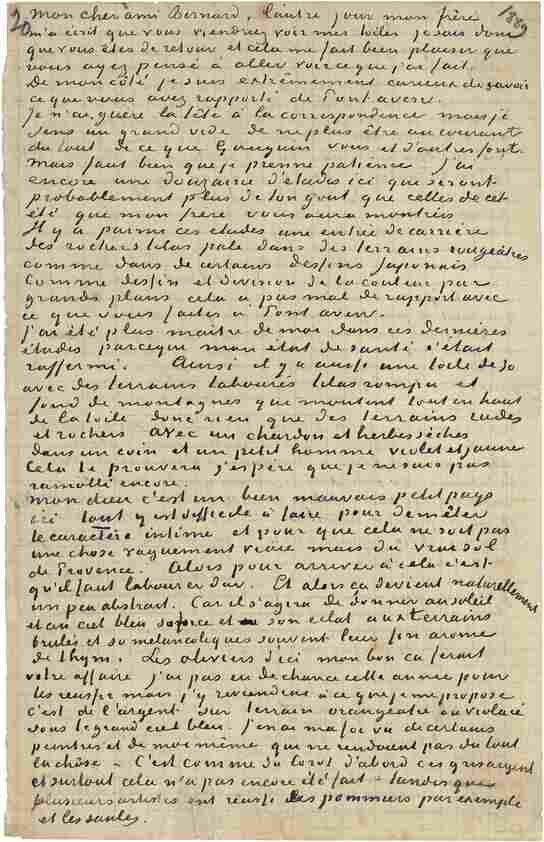 20 1889
Mon cher ami Bernard, l'autre jour mon frère
m'a écrit que vous viendrez voir mes toiles je sais donc
que vous êtes de retour et cela me fait bien plaisir que
vous ayez pensé à aller voir ce que j'ai fait.
De mon côté je suis extrêmement curieux de savoir
ce que vous avez rapporté de Pont aven.
Je n'ai guère la tête à la correspondance mais je
sens un grand vide de ne plus être au courant
du tout de ce que Gauguin vous et d'autres font.
Mais faut bien que je prenne patience j'ai
encore une douzaine d'études ici que seront
probablement plus de ton gout que celles de cet
été que mon frère vous aura montrées
Il y a parmi ces études une entrée de carrière
des rochers lilas pale dans des terrains rougeâtres
comme dans de certains dessins Japonais
Comme dessin et division de la couleur par
grands plans cela a pas mal de rapport avec
ce que vous faites à Pont aven.
J'ai été plus maître de moi dans ces dernières
études parceque mon état de santé s'était
raffermi. Ainsi il y a aussi une toile de 30
avec des terrains labourés lilas rompu et
fond de montagnes que montant tout en haut
de la toile donc rien que des terrains rudes
et rochers avec un chardon et herbes sèches
dans un coin et un petit homme violet et jaune
Cela te prouvera j'espère que je ne suis pas
ramolli encore.
Mon dieu c'est un bien mauvais petit pays
ici tout y est difficile à faire pour demêler
le caractère intime et pour que cela ne soit pas
une chose vaguement vraie mais du vrai sol
de Provence. Alors pour arriver à cela c'est
qu'il faut labourer dur. Et alors ca devient naturellement
un peu abstrait. Car il s'agira de donner au soleil
et au ciel bleu sa force et son éclat aux terrains
brulés et si mélancoliques souvent leur fin arome
de thym. Les oliviers d'ici mon bon ca ferait
votre affaire j'ai pas eu de chance celle année pour
les réussir mais j'y reviendrai à ce que je me propose
c'est de l'argent sur terrain orangeatre ou violacé
sous le grand ciel bleu. J'en ai ma foi vu de certains
peintres et de moi même qui ne rendaient pas du tout
la chôse. C'est comme du Corot d'abord ces gris argent
et surtout cela n'a pas encore été fait tandis que
plusieurs artistes ont réussi les pommiers par exemple
et les saules.